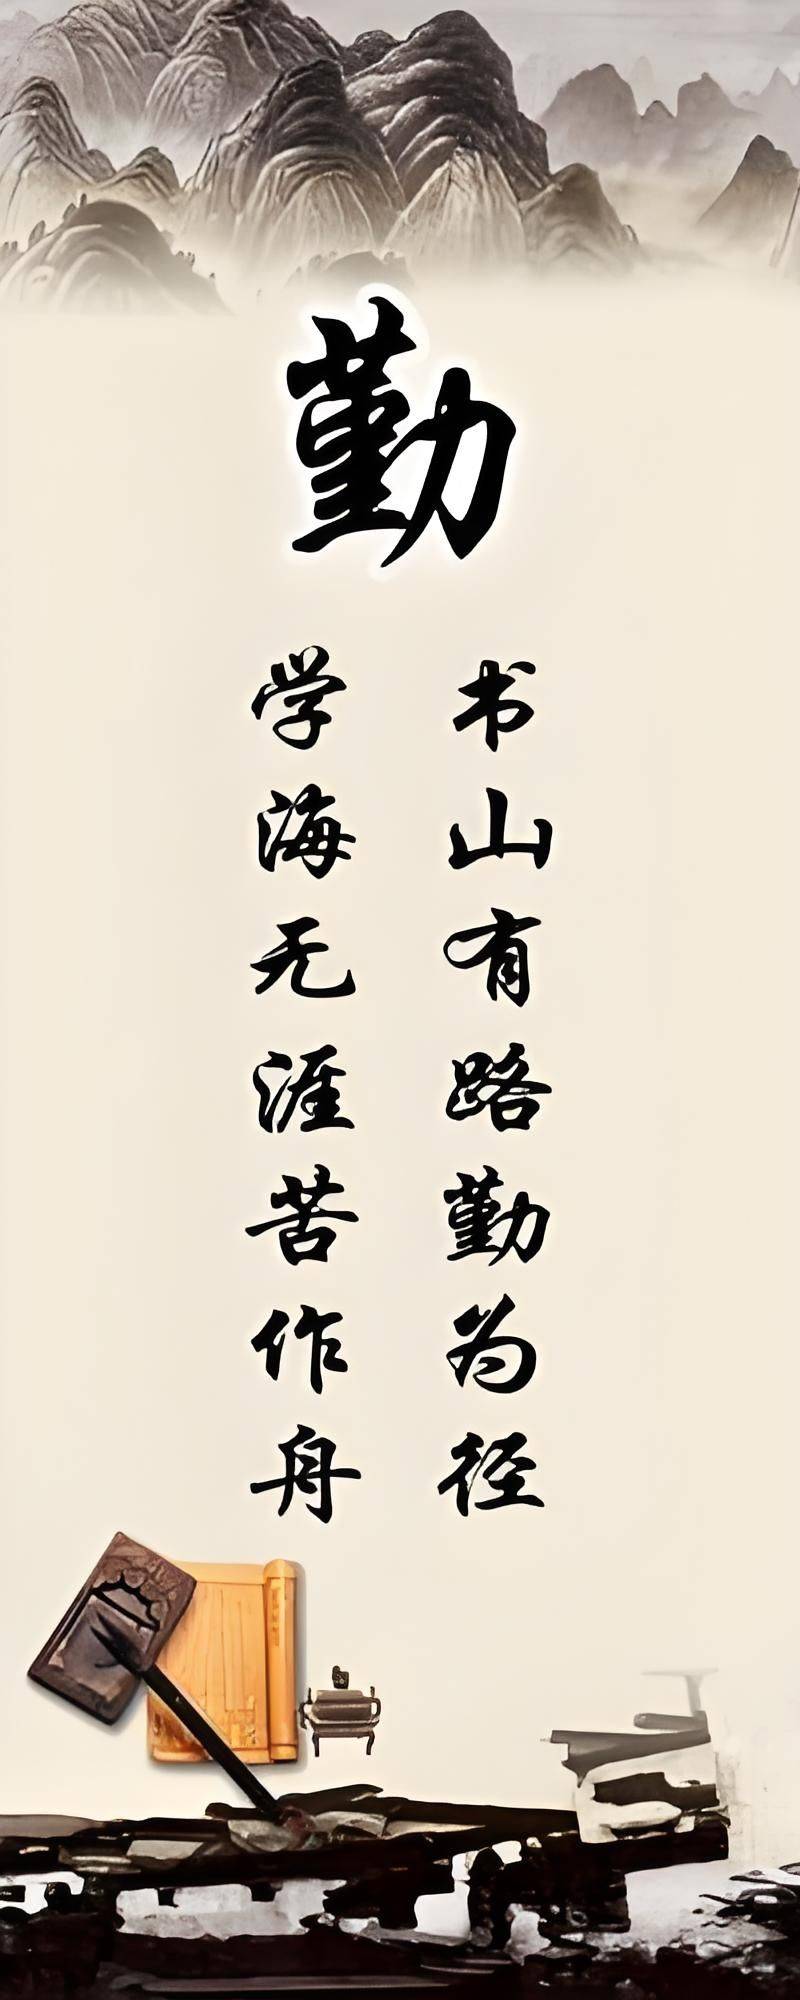 勤
书山有路勤为径
学海无涯苦作舟